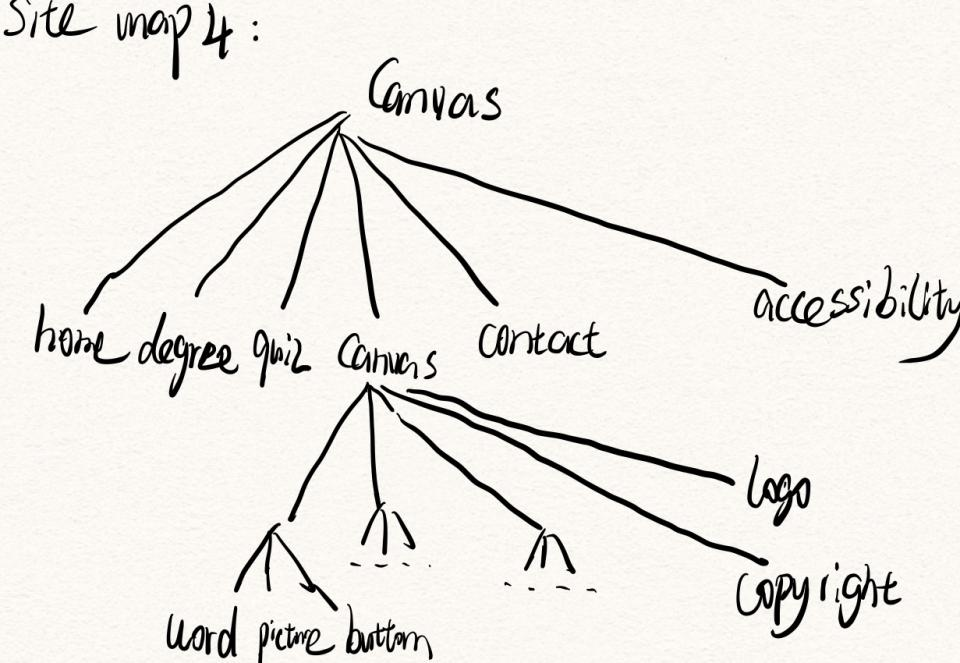 Site map 4:
Canvas
home degree quiz Canvas contact accessibility
logo
copyright
word picture button